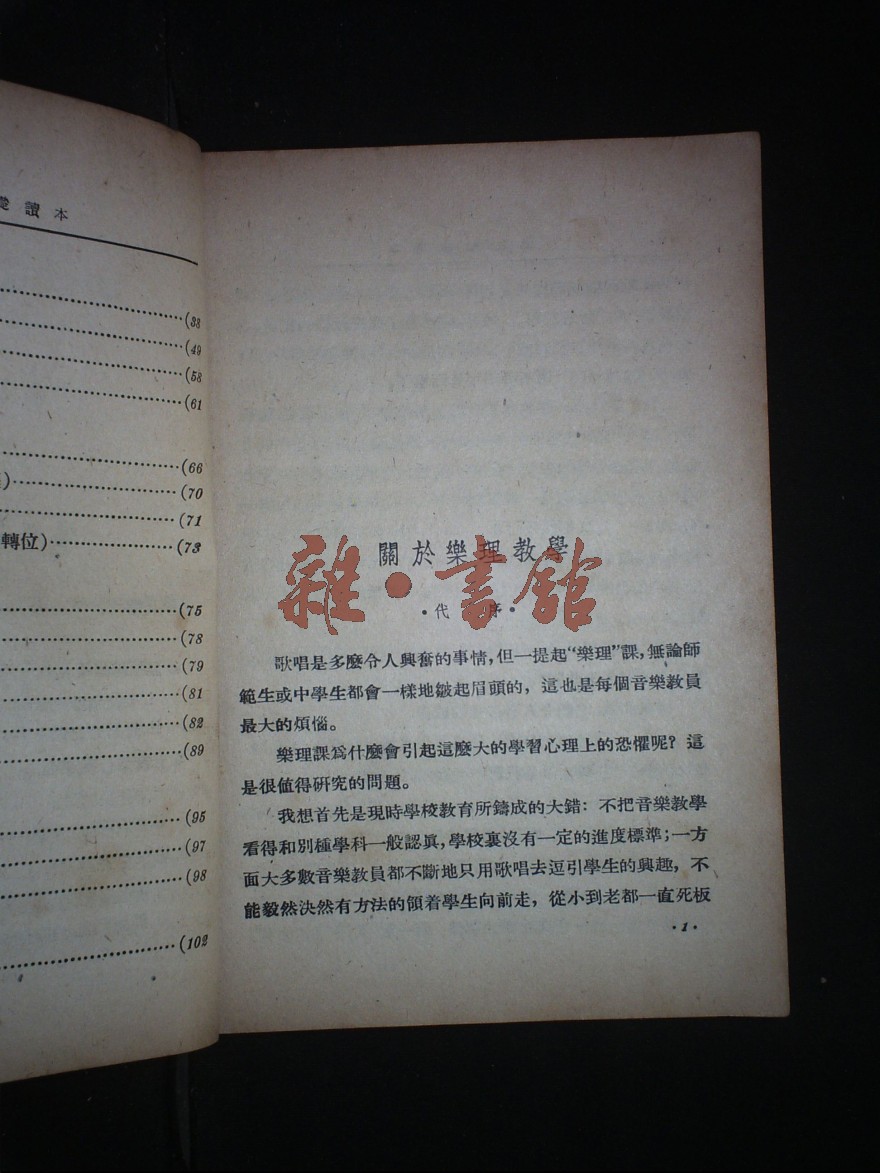 讀本
(38
(49
(58
(61
(66
)(70
(71
轉位)(73
(75
(78
(79
(81
(82
(89
(95
(97
(98
(102
關於樂理教學
·代 序·
雜·書館
歌唱是多麼令人興奮的事情,但一提起“樂理”課,無論師
範生或中學生都會一樣地皺起眉頭的,這也是每個音樂教員
最大的煩惱。
樂理課爲什麼會引起這麼大的學習心理上的恐懼呢?這
是很值得研究的問題。
我想首先是現時學校教育所鑄成的大錯:不把音樂教學
看得和別種學科一般認眞,學校裏沒有一定的進度標準;一方
面大多數音樂教員都不斷地只用歌唱去逗引學生的興趣,不
能毅然決然有方法的領着學生向前走,從小到老都一直死板
·1·